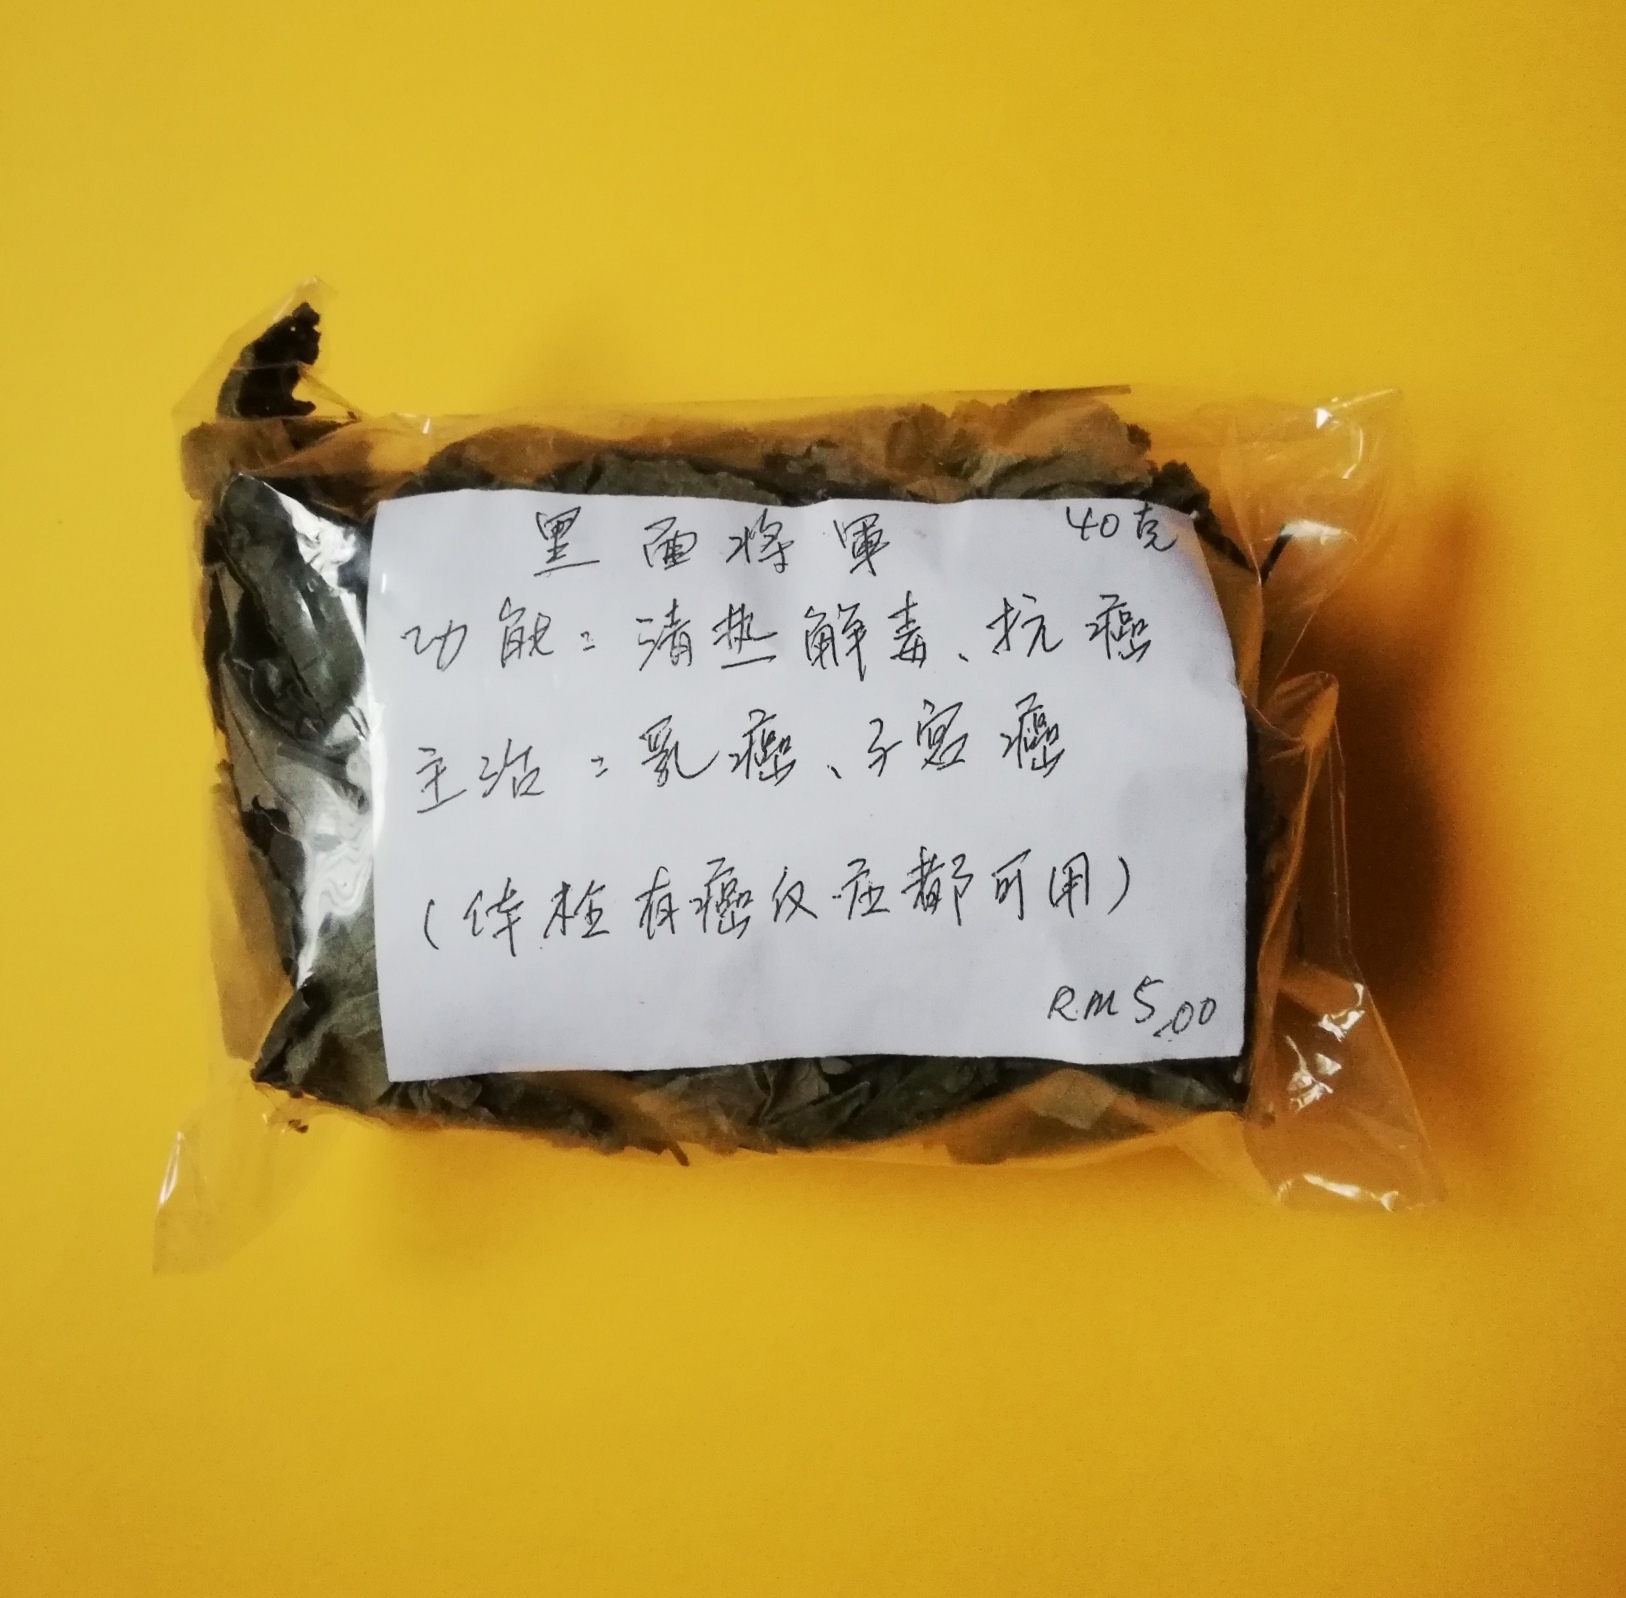 黑面将軍 40克
功能：清热解毒、抗癌
主治：乳癌、子宫癌
（体检有癌仅症都可用）
RM5.00